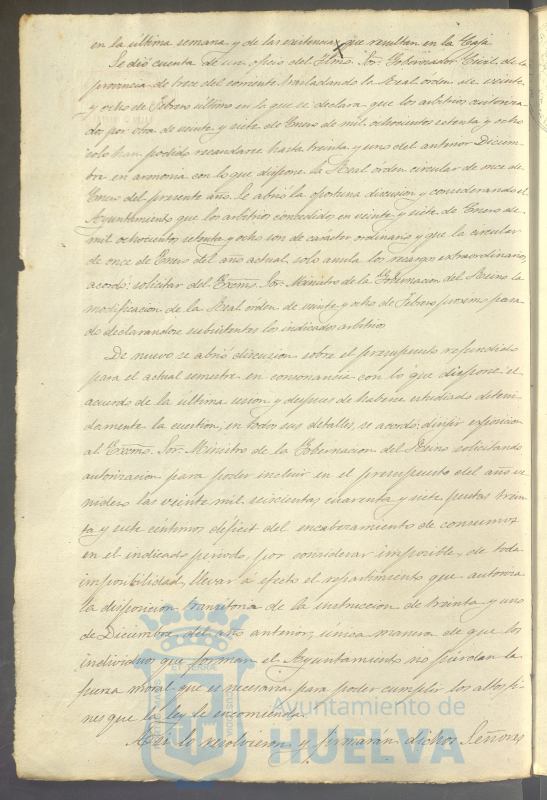 en la última semana y de las existencias que resultan en la Caja
Se dió cuenta de un oficio del Iltmo. Sor. Gobernador Civil de la
provincia de trece del corriente trasladando la Real orden de veinte
y ocho de Febrero último en la que se declara que los arbitrios autoriza
dos por otra de veinte y siete de Enero de mil ochocientos setenta y ocho
solo han podido recaudarse hasta treinta y uno del anterior Diciem-
bre en armonia con lo que dispone la Real órden circular de once de
Enero del presente año. Se abrió la oportuna discusion y considerando el
Ayuntamiento que los arbitrios concedidos en veinte y siete de Enero de
mil ochocientos setenta y ocho son de carácter ordinario y que la circular
de once de Enero del año actual solo anula los recargos extraordinarios,
acordó: solicitar del Excmo. Sor. Ministro de la Gobernacion del Reino la
modificacion de la Real órden de veinte y ocho de Febrero proximo pasa
do declarandose subsistentes los indicados arbitrios
De nuevo se abrió discusion sobre el presupuesto refundido
para el actual semestre en consonancia con lo que dispone el
acuerdo de la ultima sesion y despues de haberse estudiado deteni-
damente la cuestion, en todos sus detalles, se acordó: dirijir exposicion
al Excmo. Sor. Ministro de la Gobernacion del Reino solicitando
autorizacion para poder incluir en el presupuesto del año ve
nidero las veinte mil seiscientas cuarenta y siete pesetas trein
ta y siete céntimos déficit del encabezamiento de consumos
en el indicado periodo, por considerar imposible, de toda
imposibilidad, llevar á efecto el repartimiento que autoriza
la disposicion transitoria de la instruccion de treinta y uno
de Diciembre del año anterior, única manera de que los
individuos que forman el Ayuntamiento no pierdan la
fuerza moral que es necesaria para poder cumplir los altos fi-
nes que la ley le encomienda.
Asi lo resolvieron y firmarán dichos Señores
Ayuntamiento de
HUELVA